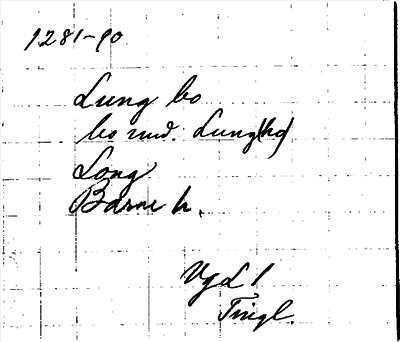 1281-90
Lung bo
bo rud. Lung(ho)
Long
Barne h.
Vgd 1
Tingl.